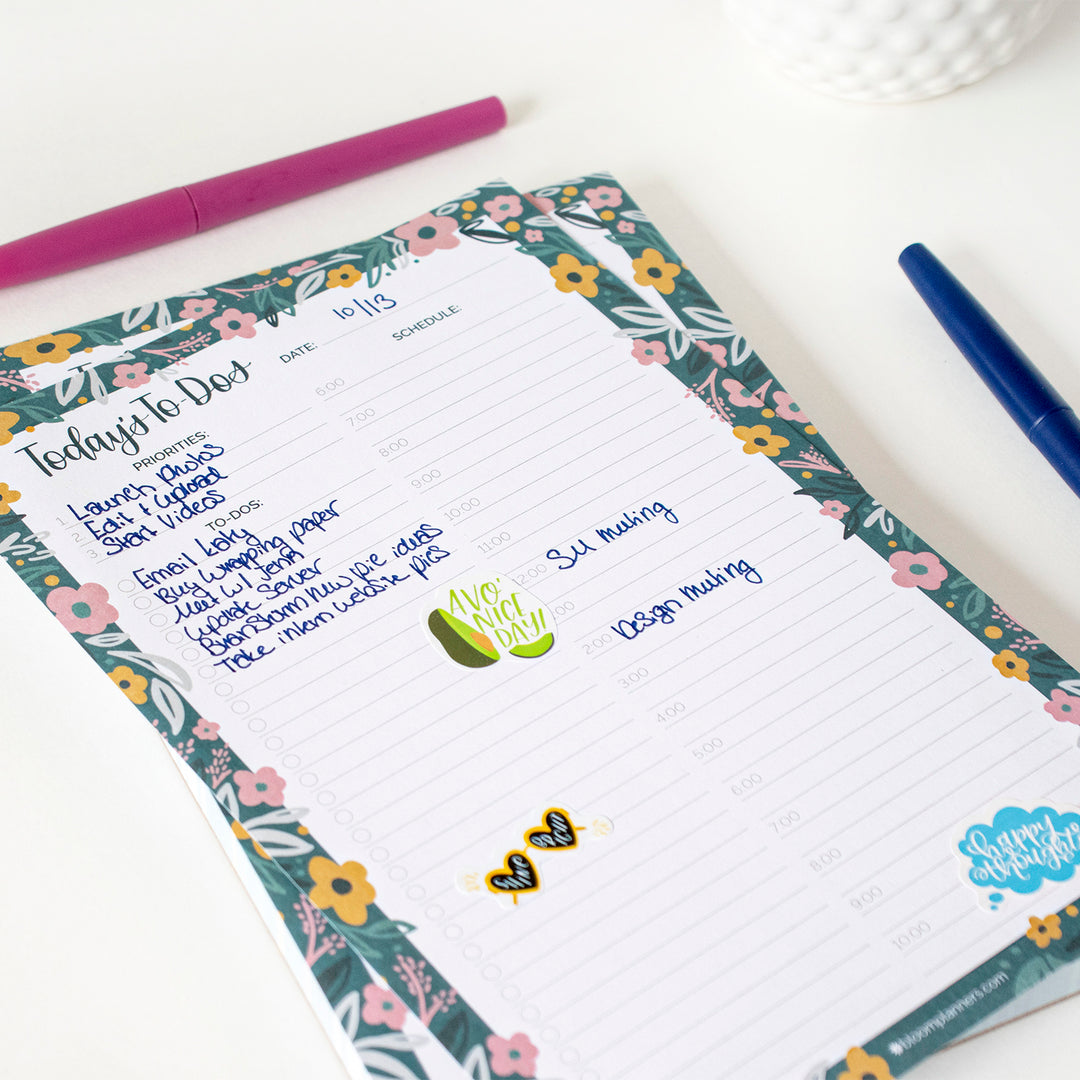 Today's To Dos
DATE: 10/13
PRIORITIES:
1. Launch photos
2. Edit + upload
3. Start Videos
TO-DOS:
Email Katy
Buy wrapping paper
Meet w/ Jenn
Update server
Brainstorm new pie ideas
Take intern website pics
SCHEDULE:
6:00
7:00
8:00
9:00
10:00
11:00
12:00 SM meeting
:00
2:00 Design meeting
3:00
4:00
5:00
6:00
7:00
8:00
9:00
10:00
AVO'
NICE
DAY!
happy
bloomplanners.com